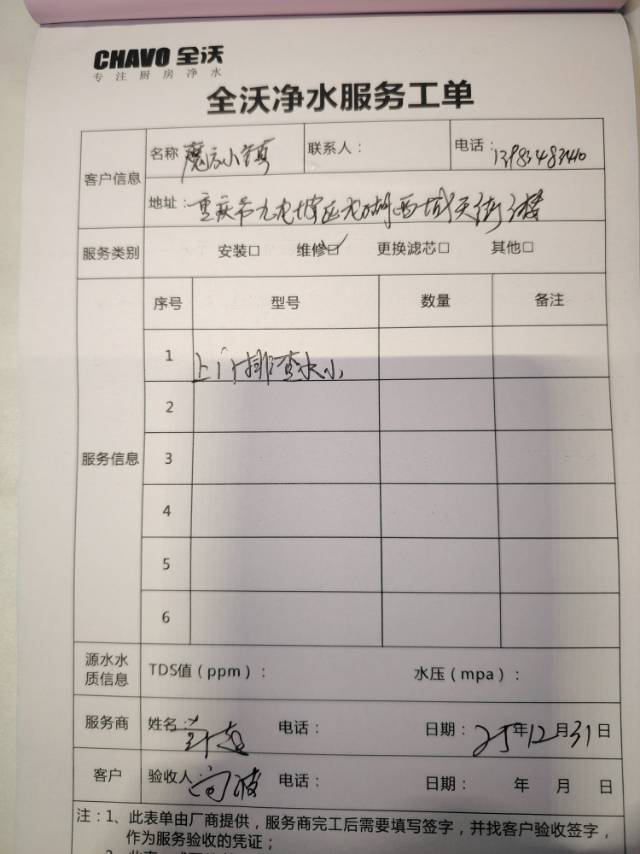 CHAVO 全沃
专注厨房净水
全沃净水服务工单
客户信息 名称 魔方小镇 联系人： 电话：
地址：重庆市九龙坡区龙湖西城天街3楼
服务类别 安装□ 维修☑ 更换滤芯□ 其他□
服务信息 序号 型号 数量 备注
1 上门排查水小
2
3
4
5
6
源水水质信息 TDS值（ppm）： 水压（mpa）：
服务商 姓名： 电话： 日期：25年12月31日
客户 验收人： 电话： 日期： 年 月 日
注：1、此表单由厂商提供，服务商完工后需要填写签字，并找客户验收签字，
作为服务验收的凭证；